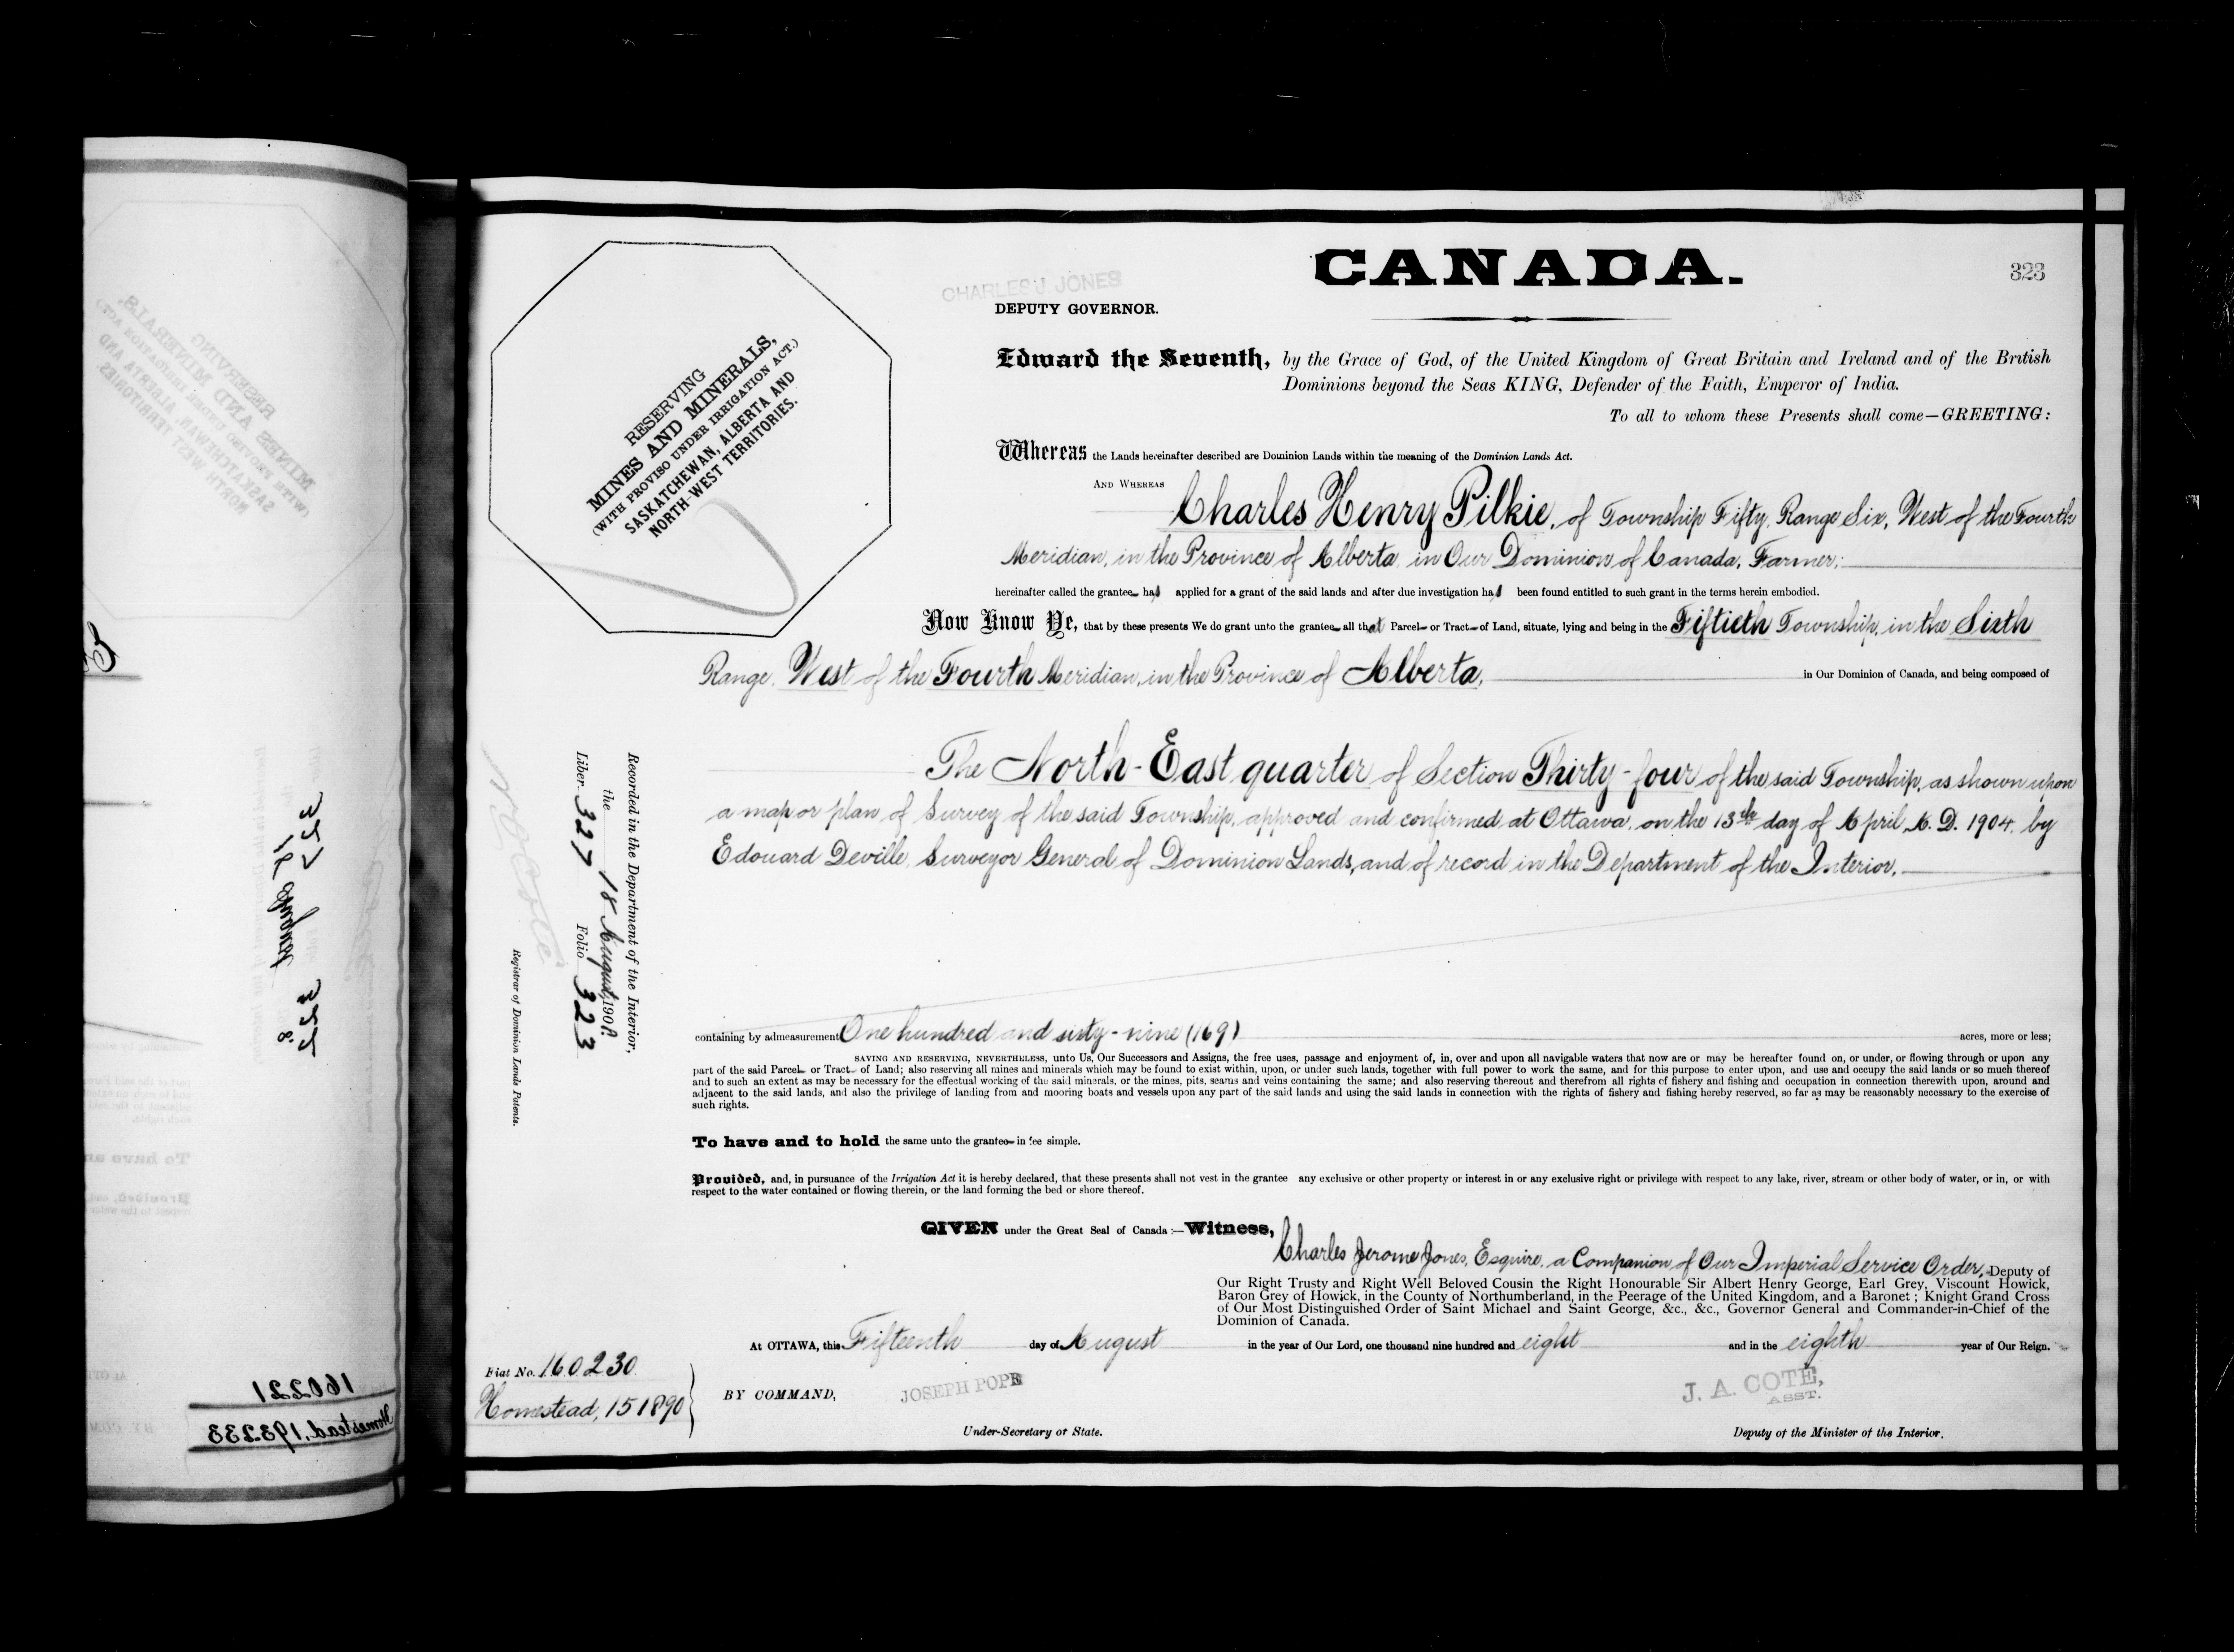 CANADA.
323
CHARLES J. JONES
DEPUTY GOVERNOR.
RESERVING
MINES AND MINERALS,
(WITH PROVISO UNDER IRRIGATION ACT.)
SASKATCHEWAN, ALBERTA AND
NORTH-WEST TERRITORIES.
Edward the Seventh, by the Grace of God, of the United Kingdom of Great Britain and Ireland and of the British
Dominions beyond the Seas KING, Defender of the Faith, Emperor of India.
To all to whom these Presents shall come—GREETING:
Whereas the Lands hereinafter described are Dominion Lands within the meaning of the Dominion Lands Act.
AND WHEREAS Charles Henry Pilkie, of Township Fifty, Range Six, West of the Fourth
Meridian, in the Province of Alberta, in Our Dominion of Canada, Farmer;
hereinafter called the grantee had applied for a grant of the said lands and after due investigation had been found entitled to such grant in the terms herein embodied.
Now Know Ye, that by these presents We do grant unto the grantee all that Parcel or Tract of Land, situate, lying and being in the Fiftieth Township, in the Sixth
Range, West of the Fourth Meridian, in the Province of Alberta, in Our Dominion of Canada, and being composed of
The North-East quarter of Section Thirty-four of the said Township, as shown upon
a map or plan of Survey of the said Township, approved and confirmed at Ottawa, on the 13th day of April A. D. 1904, by
Edouard Deville, Surveyor General of Dominion Lands, and of record in the Department of the Interior.
Recorded in the Department of the Interior,
the 18 August, 1908.
Liber 327 Folio 323
Registrar of Dominion Lands Patents.
containing by admeasurement One hundred and sixty-nine (169) acres, more or less;
SAVING AND RESERVING, NEVERTHELESS, unto Us, Our Successors and Assigns, the free uses, passage and enjoyment of, in, over and upon all navigable waters that now are or may be hereafter found on, or under, or flowing through or upon any
part of the said Parcel or Tract of Land; also reserving all mines and minerals which may be found to exist within, upon, or under such lands, together with full power to work the same, and for this purpose to enter upon, and use and occupy the said lands or so much thereof
and to such an extent as may be necessary for the effectual working of the said minerals, or the mines, pits, seams and veins containing the same; and also reserving thereout and therefrom all rights of fishery and fishing and occupation in connection therewith upon, around and
adjacent to the said lands, and also the privilege of landing from and mooring boats and vessels upon any part of the said lands and using the said lands in connection with the rights of fishery and fishing hereby reserved, so far as may be reasonably necessary to the exercise of
such rights.
To have and to hold the same unto the grantee in fee simple.
Provided, and, in pursuance of the Irrigation Act it is hereby declared, that these presents shall not vest in the grantee any exclusive or other property or interest in or any exclusive right or privilege with respect to any lake, river, stream or other body of water, or in, or with
respect to the water contained or flowing therein, or the land forming the bed or shore thereof.
GIVEN under the Great Seal of Canada:—Witness,
Charles Jerome Jones, Esquire, a Companion of Our Imperial Service Order, Deputy of
Our Right Trusty and Right Well Beloved Cousin the Right Honourable Sir Albert Henry George, Earl Grey, Viscount Howick,
Baron Grey of Howick, in the County of Northumberland, in the Peerage of the United Kingdom, and a Baronet; Knight Grand Cross
of Our Most Distinguished Order of Saint Michael and Saint George, &c., &c., Governor General and Commander-in-Chief of the
Dominion of Canada.
At OTTAWA, this Fifteenth day of August in the year of Our Lord, one thousand nine hundred and eight and in the eighth year of Our Reign.
Fiat No. 160230.
Homestead, 151890
BY COMMAND,
JOSEPH POPE
Under-Secretary of State.
J. A. COTE,
ASST.
Deputy of the Minister of the Interior.
160221
Homestead, 193233